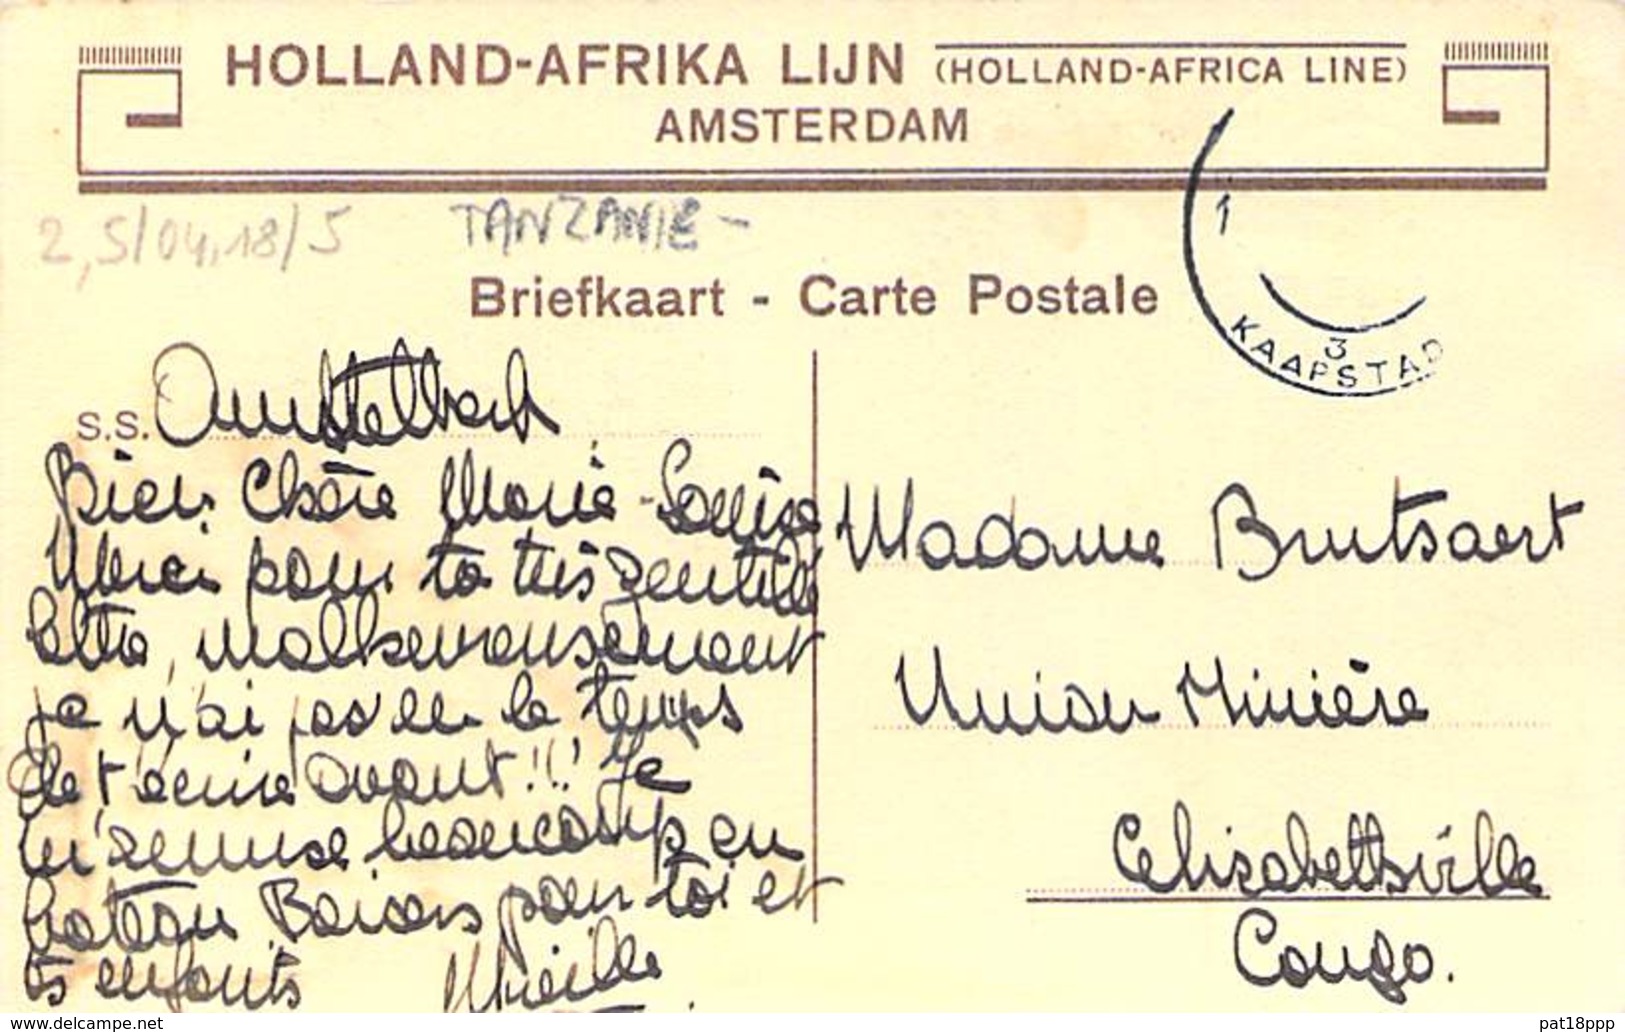 HOLLAND-AFRIKA LIJN (HOLLAND-AFRICA LINE)
AMSTERDAM
2,5/04.18/5 TANZANIE -
Briefkaart - Carte Postale
1
3
KAAPSTAD
S.S.
Bien Chère Marie-Louise
Merci pour ta très gentille
lettre, malheureusement
je n'ai pas eu le temps
de t'écrire avant!!! Je
m'amuse beaucoup en
bateau Baisers pour toi et
tes enfants Mireille
Madame Brutsaert
Union Minière
Elisabethville
Congo.
www.delcampe.net
pat18ppp